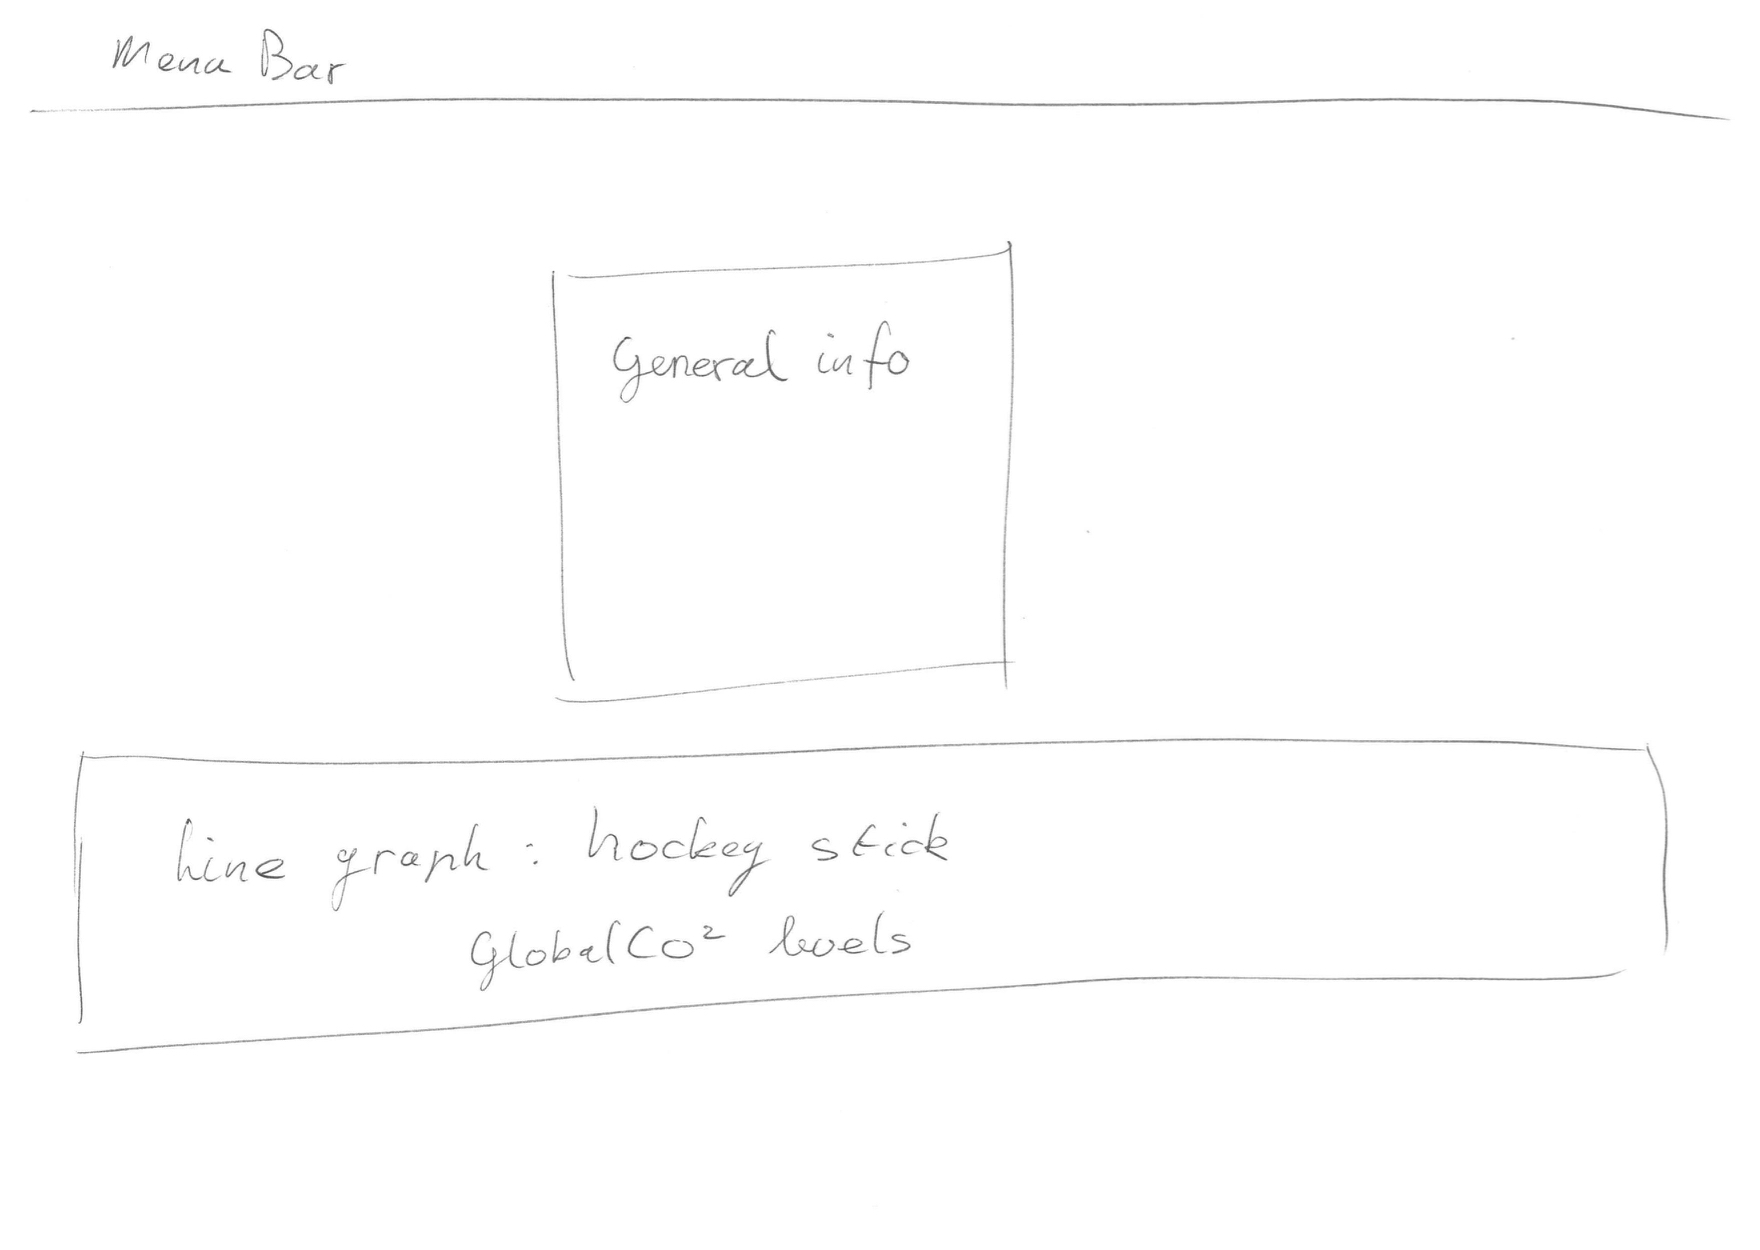 Menu Bar
General info
Line graph : hockey stick
Global CO² levels